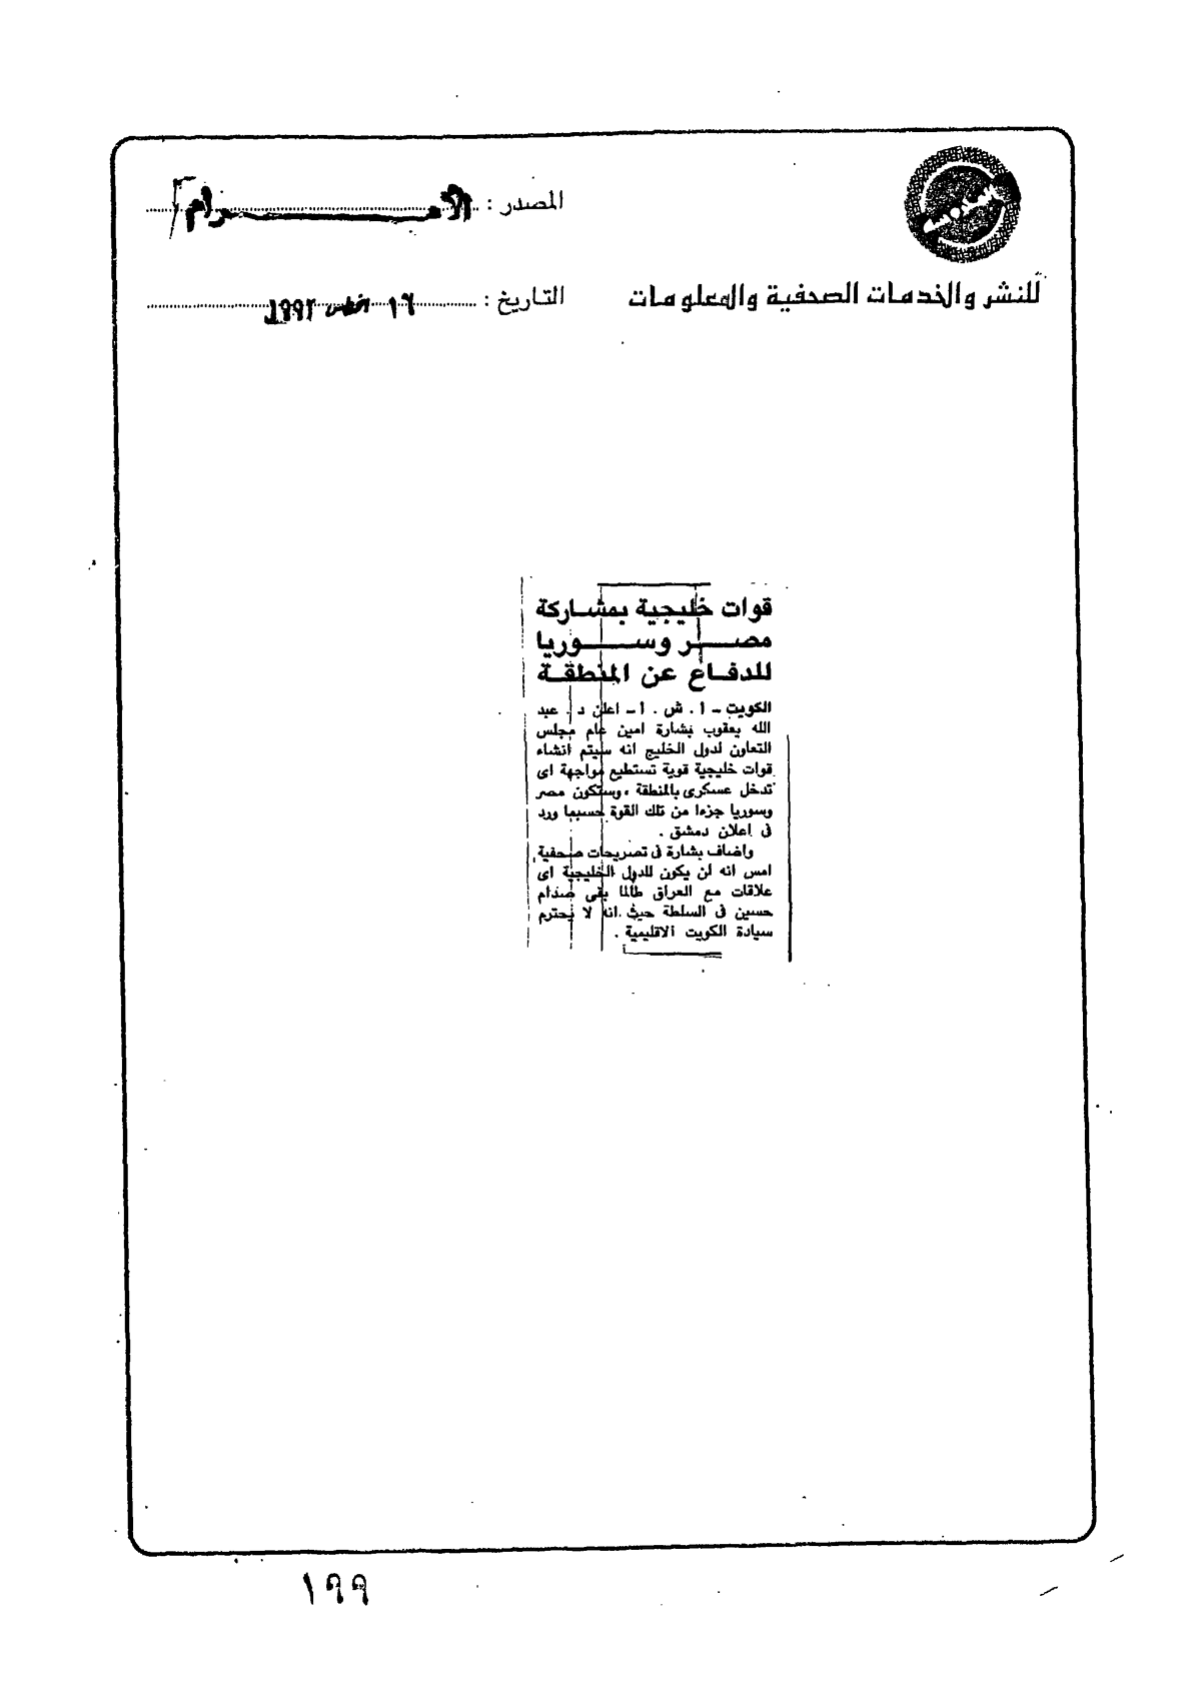 المصدر : الأهـــــرام
للنشر والخدمات الصحفية والمعلومات
التاريخ : ١٦ اغسطس ١٩٩٢
قوات خليجية بمشـاركة
مصــــر وســـــوريا
للدفـاع عن المنطقـة
الكويت - ا . ش . ا - اعلن د . عبد
الله يعقوب بشارة امين عام مجلس
التعاون لدول الخليج انه سيتم انشاء
قوات خليجية قوية تستطيع مواجهة اى
تدخل عسكرى بالمنطقة ، وستكون مصر
وسوريا جزءا من تلك القوة حسبما ورد
فى اعلان دمشق .
واضاف بشارة فى تصريحات صحفية
امس انه لن يكون للدول الخليجية اى
علاقات مع العراق طالما بقى صدام
حسين فى السلطة حيث انه لا يحترم
سيادة الكويت الاقليمية .
١٩٩